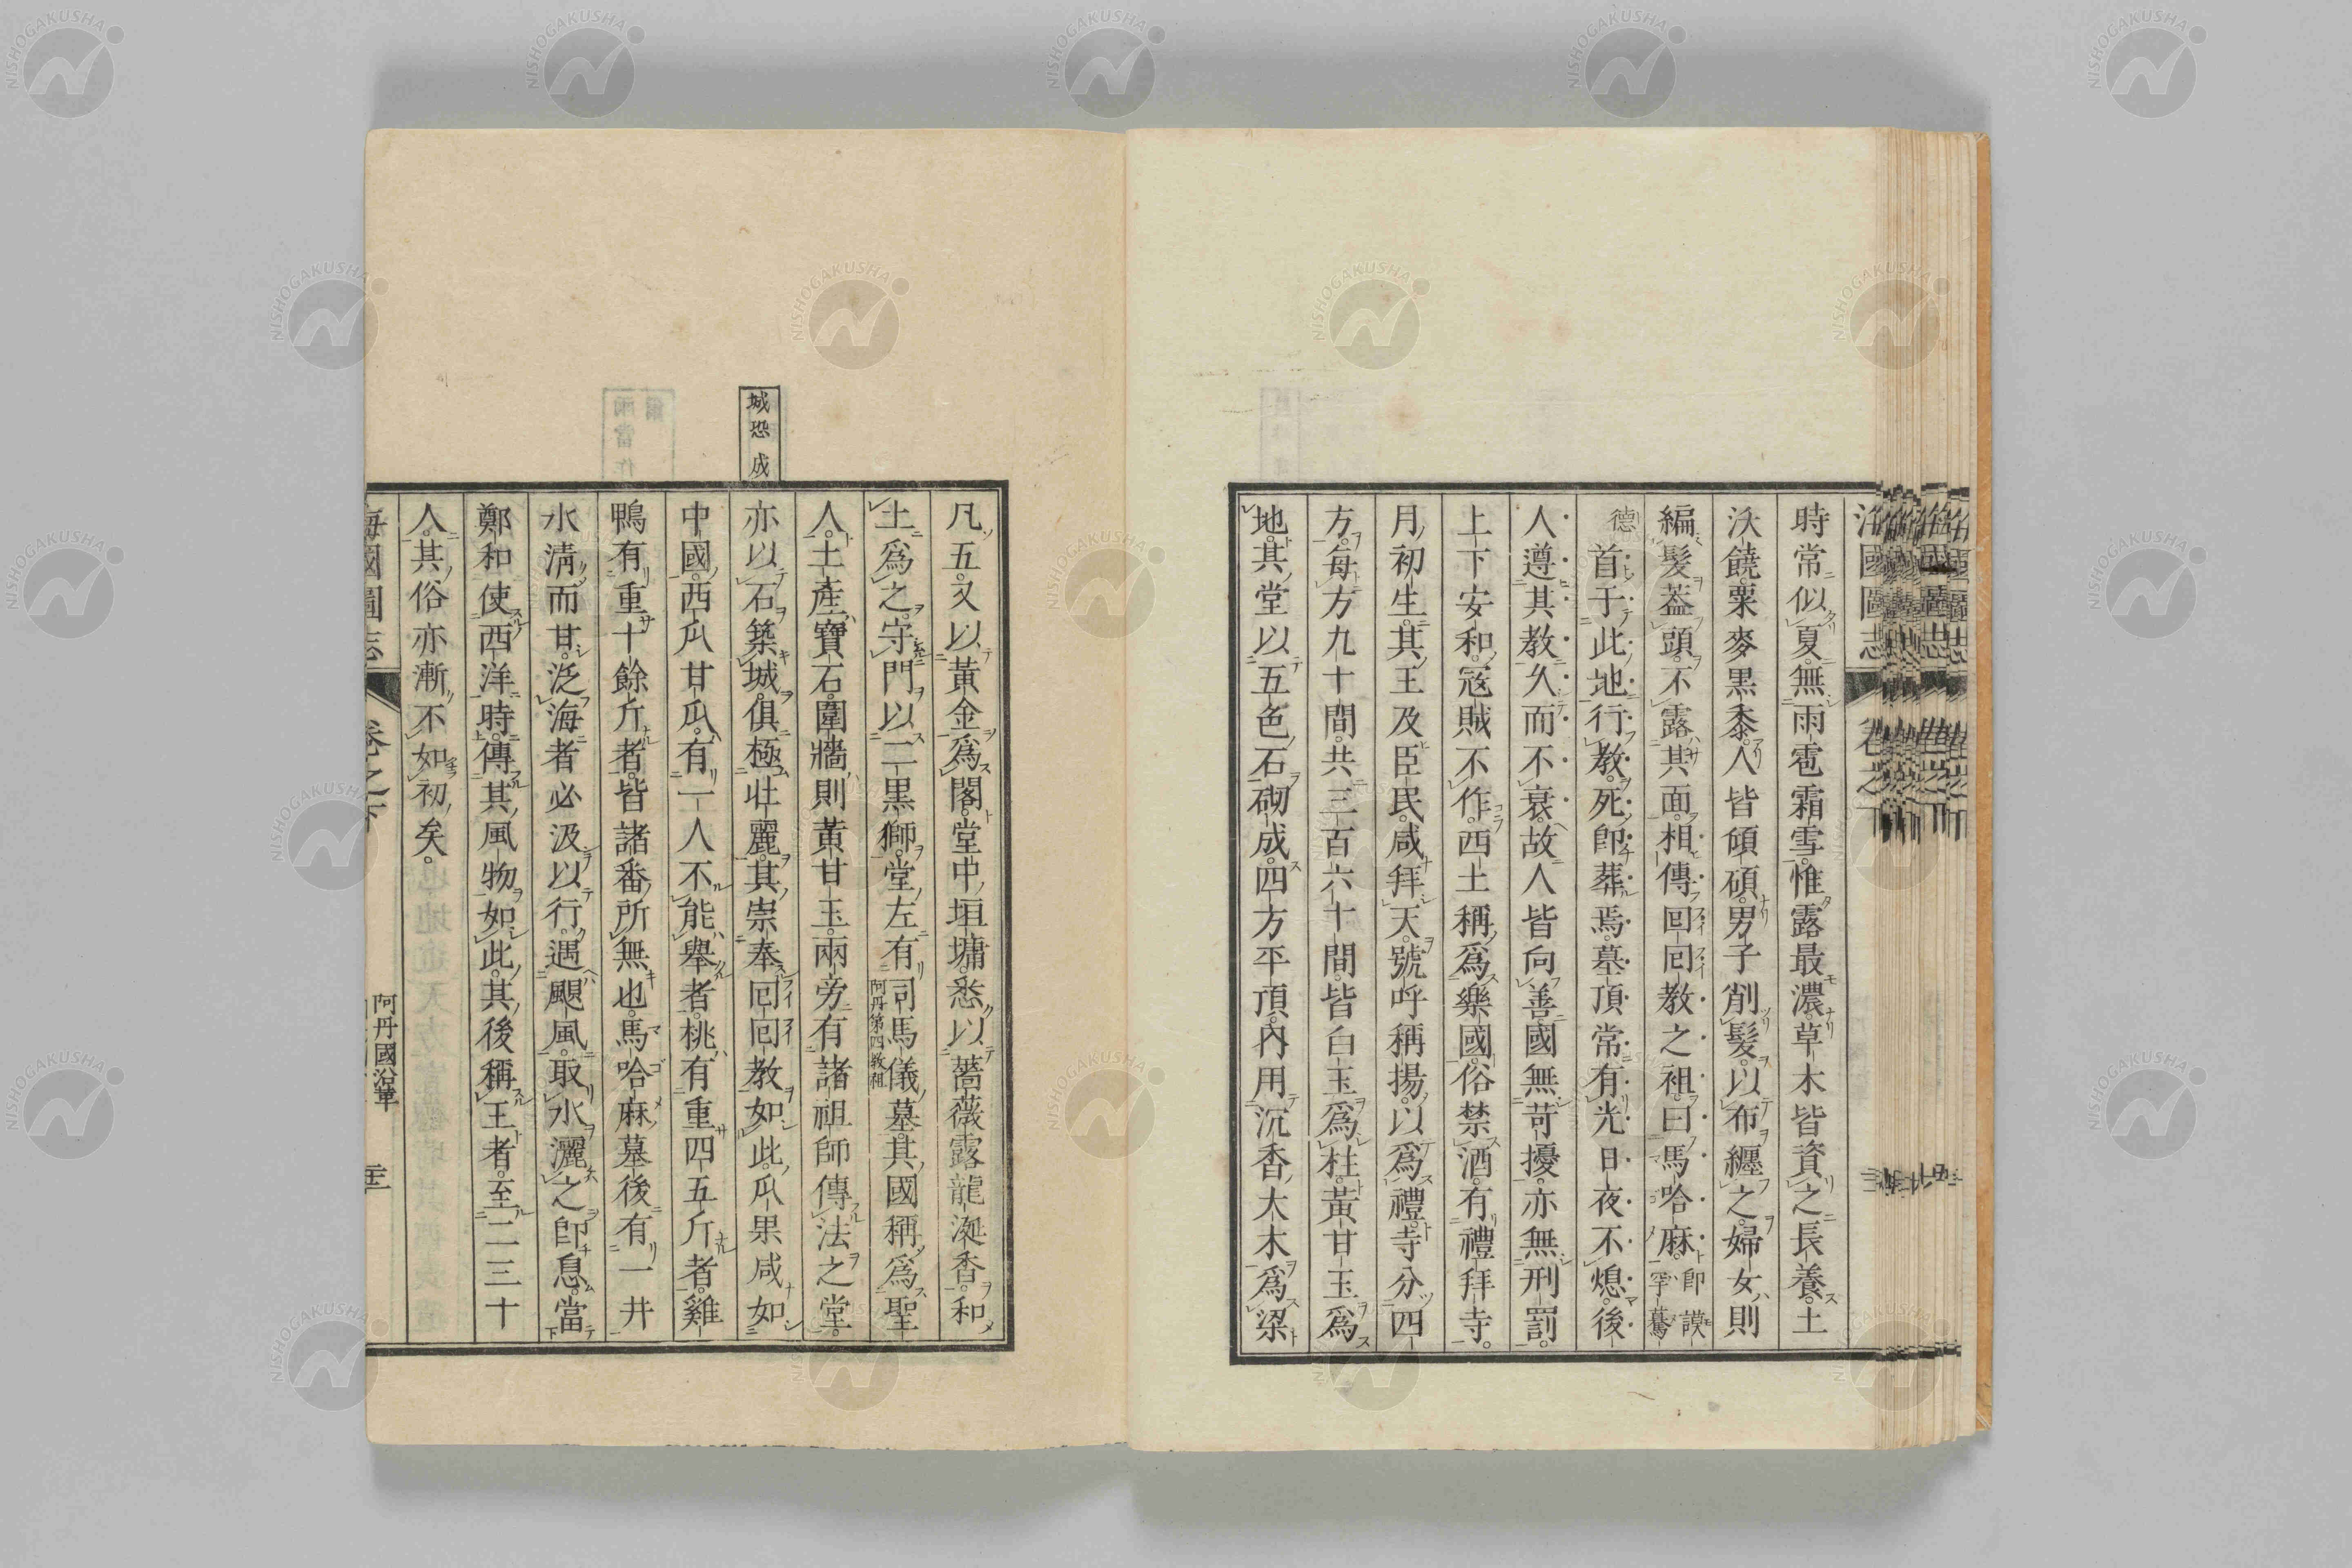 海國圖志
時常似夏無雨雹霜雪惟露最濃草木皆資之長養土
沃饒粟麥黑黍人皆頎碩男子削髮以布纏之婦女則
編髮葢頭不露其面相傳回回教之祖曰馬哈麻卽謨罕驀
德首于此地行教死卽葬焉墓頂常有光日夜不熄後
人遵其教久而不衰故人皆向善國無苛擾亦無刑罰
上下安和寇賊不作西土稱爲樂國俗禁酒有禮拜寺
月初生其王及臣民咸拜天號呼稱揚以爲禮寺分四
方每方九十間共三百六十間皆白玉爲柱黃甘玉爲
地其堂以五色石砌成四方平頂內用沉香大木爲梁
凡五又以黃金爲閣堂中垣墉悉以薔薇露龍涎香和
土爲之守門以二黑獅堂左有司馬儀墓其國稱爲聖
阿丹第四教祖
人土產寶石圍牆則黃甘玉兩旁有諸祖師傳法之堂
亦以石築城俱極壯麗其崇奉回回教如此瓜果咸如
城恐成
中國西瓜甘瓜有一人不能舉者桃有重四五斤者雞
鴨有重十餘斤者皆諸番所無也馬哈麻墓後有一井
水淸而甘泛海者必汲以行遇颶風取水灑之卽息當
鄭和使西洋時傳其風物如此其後稱王者至二三十
人其俗亦漸不如初矣
海國圖志
卷之下
阿丹國沿革
NISHOGAKUSHA